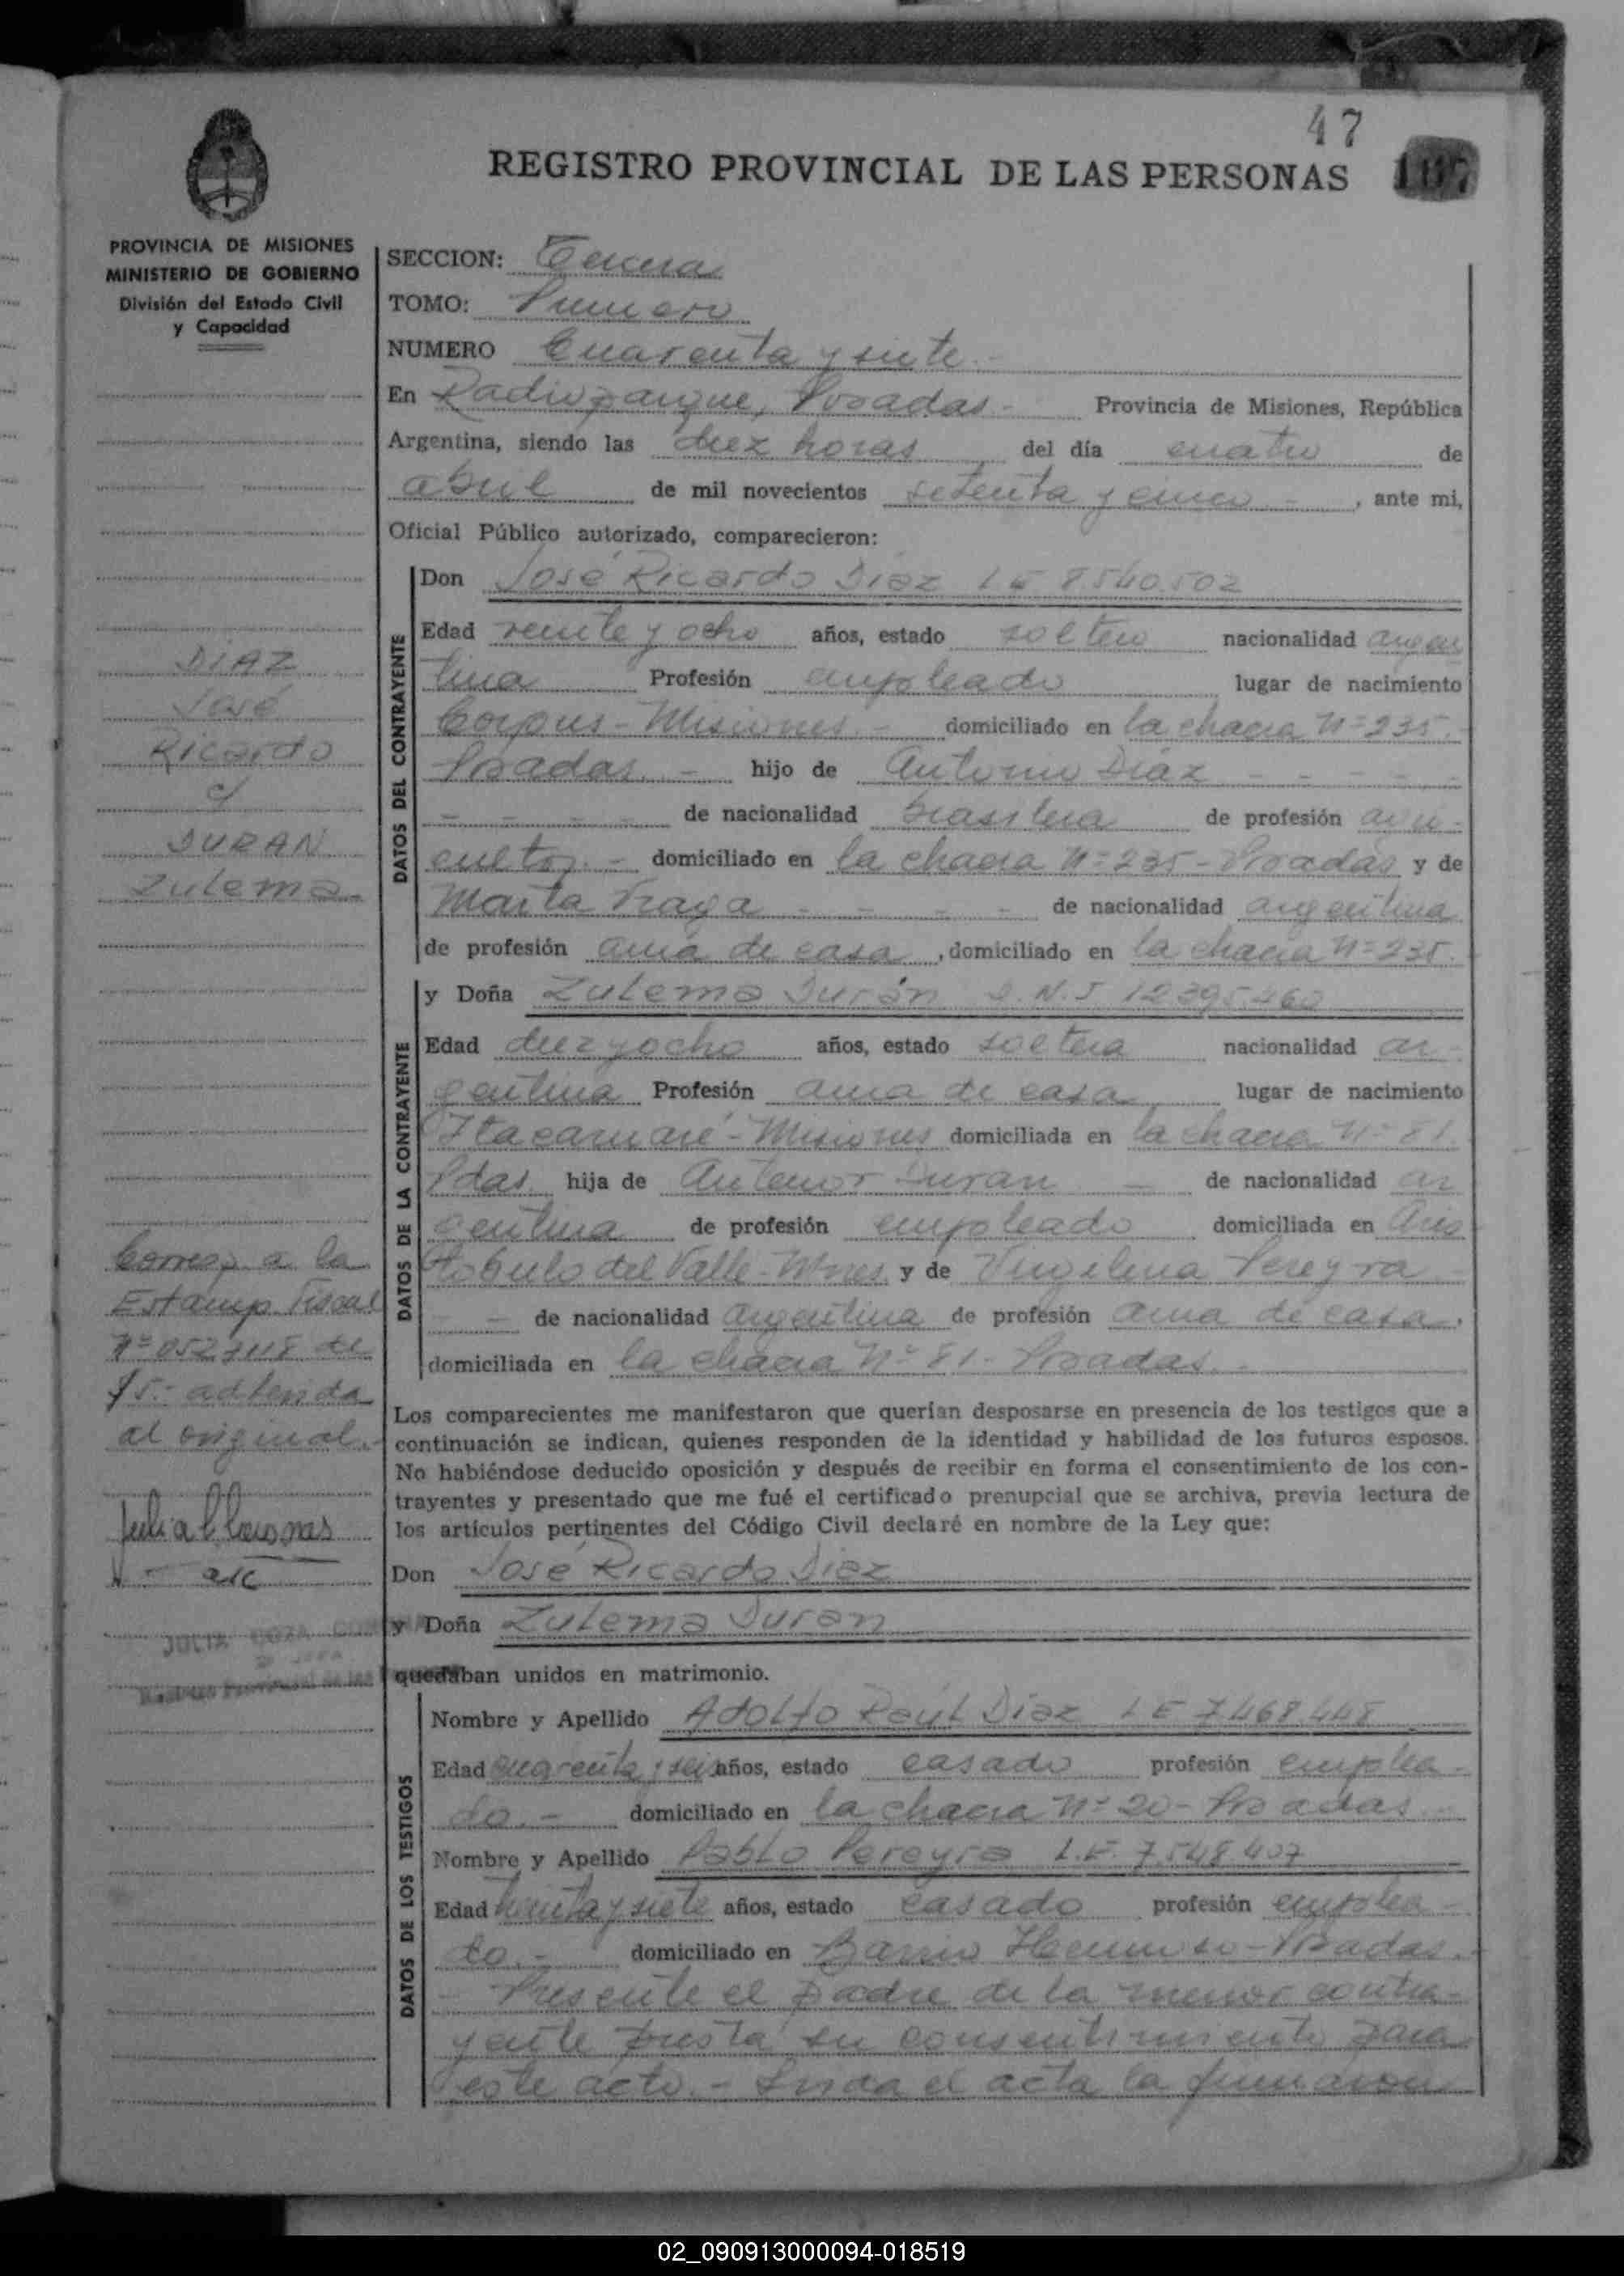 47
REGISTRO PROVINCIAL DE LAS PERSONAS
PROVINCIA DE MISIONES
MINISTERIO DE GOBIERNO
División del Estado Civil
y Capacidad
SECCION: Tercera
TOMO: Primero
NUMERO Cuarenta y siete.-
En Radioparque, Posadas.- Provincia de Misiones, República
Argentina, siendo las diez horas del día cuatro de
abril de mil novecientos setenta y cinco - , ante mi,
Oficial Público autorizado, comparecieron:
DATOS DEL CONTRAYENTE
Don José Ricardo Diaz LE 8.540.502
Edad veinte y ocho años, estado soltero nacionalidad argen
tina Profesión empleado lugar de nacimiento
Corpus - Misiones.- domiciliado en la chacra Nº 235.
Posadas. - hijo de Antonio Diaz - - - - -
- - - - - de nacionalidad brasilera de profesión agri-
cultor.- domiciliado en la chacra Nº 235 - Posadas y de
Marta Fraga - - - - - de nacionalidad argentina
de profesión ama de casa , domiciliado en la chacra Nº 235.
DATOS DE LA CONTRAYENTE
y Doña Zulema Durán D.N.I 12.395.460
Edad diez y ocho años, estado soltera nacionalidad ar-
gentina Profesión ama de casa lugar de nacimiento
Itacaruaré - Misiones domiciliada en la chacra Nº 81.
Pdas. hija de Antenor Duran - de nacionalidad ar
gentina de profesión empleado domiciliada en Aris
tobulo del Valle - Mnes y de Virgilina Pereyra -
- - de nacionalidad argentina de profesión ama de casa.
domiciliada en la chacra Nº 81 - Posadas.-
Los comparecientes me manifestaron que querían desposarse en presencia de los testigos que a
continuación se indican, quienes responden de la identidad y habilidad de los futuros esposos.
No habiéndose deducido oposición y después de recibir en forma el consentimiento de los con-
trayentes y presentado que me fué el certificado prenupcial que se archiva, previa lectura de
los artículos pertinentes del Código Civil declaré en nombre de la Ley que:
Don José Ricardo Diaz
y Doña Zulema Duran
quedaban unidos en matrimonio.
DATOS DE LOS TESTIGOS
Nombre y Apellido Adolfo Raúl Diaz LE 7.468.448
Edad cuarenta y seis años, estado casado profesión emplea-
do.- domiciliado en la chacra Nº 20 - Posadas.-
Nombre y Apellido Pablo Pereyra L.E. 7.548.407
Edad treinta y siete años, estado casado profesión emplea-
do.- domiciliado en Barrio - Posadas.-
- Presente el padre de la menor contra-
yente presta su consentimiento para
este acto.- Leida el acta la firmaron
DIAZ
José
Ricardo
c/
DURAN
Zulema
Corresp. a la
Estamp. Fiscal
Nº de
$5.- adherida
al original.-
JULIA
02_090913000094-018519